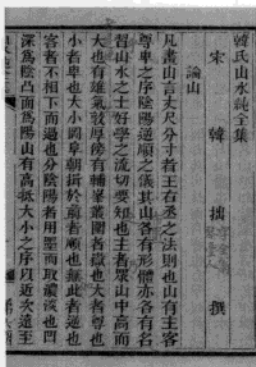 韓氏山水純全集
宋 韓 拙 撰
論山
凡畫山言丈尺分寸者王右丞之法則也山有主客
尊卑之序陰陽逆順之儀其山各有形體亦各有名
習山水之士好學之流切要知也主者眾山中高而
大也有雄氣敦厚傍有輔峯叢圍者嶽也大者尊也
小者卑也大小岡阜朝揖於前者順也無此者逆也
客者不相下而過也分陰陽者用墨而取濃淡也凹
深為陰凸面為陽山有高低大小之序以近次遠至